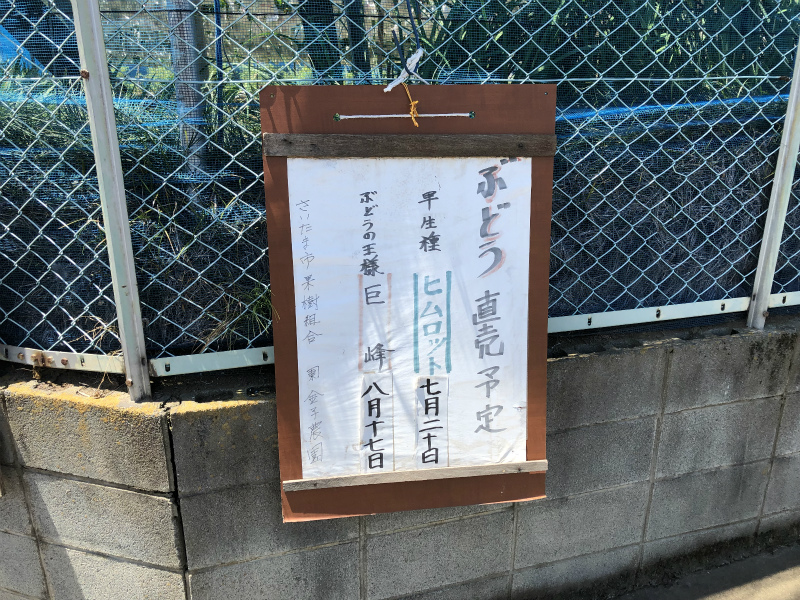 ぶどう 直売予定
早生種 ヒムロット 七月二十日
ぶどうの王様 巨 峰 八月十七日
さいたま市果樹組合 金子農園